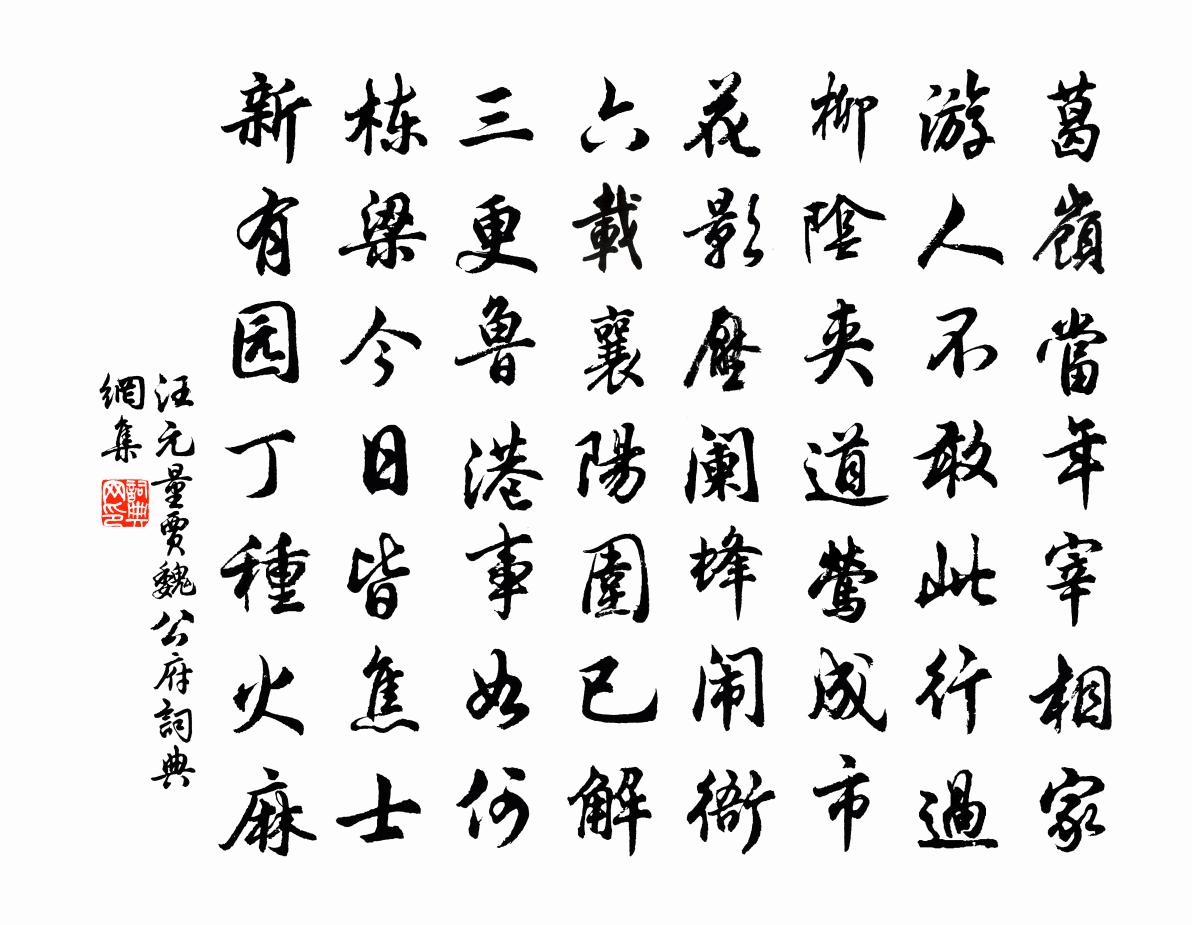 葛嶺當年宰相家
游人不敢此行過
柳陰夾道鶯成市
花影壓阑蜂闹衙
六載襄陽圍已解
三更魯港事如何
栋梁今日皆焦士
新有园丁種火麻
汪元量賈魏公府詞典
網集
詞典
网印